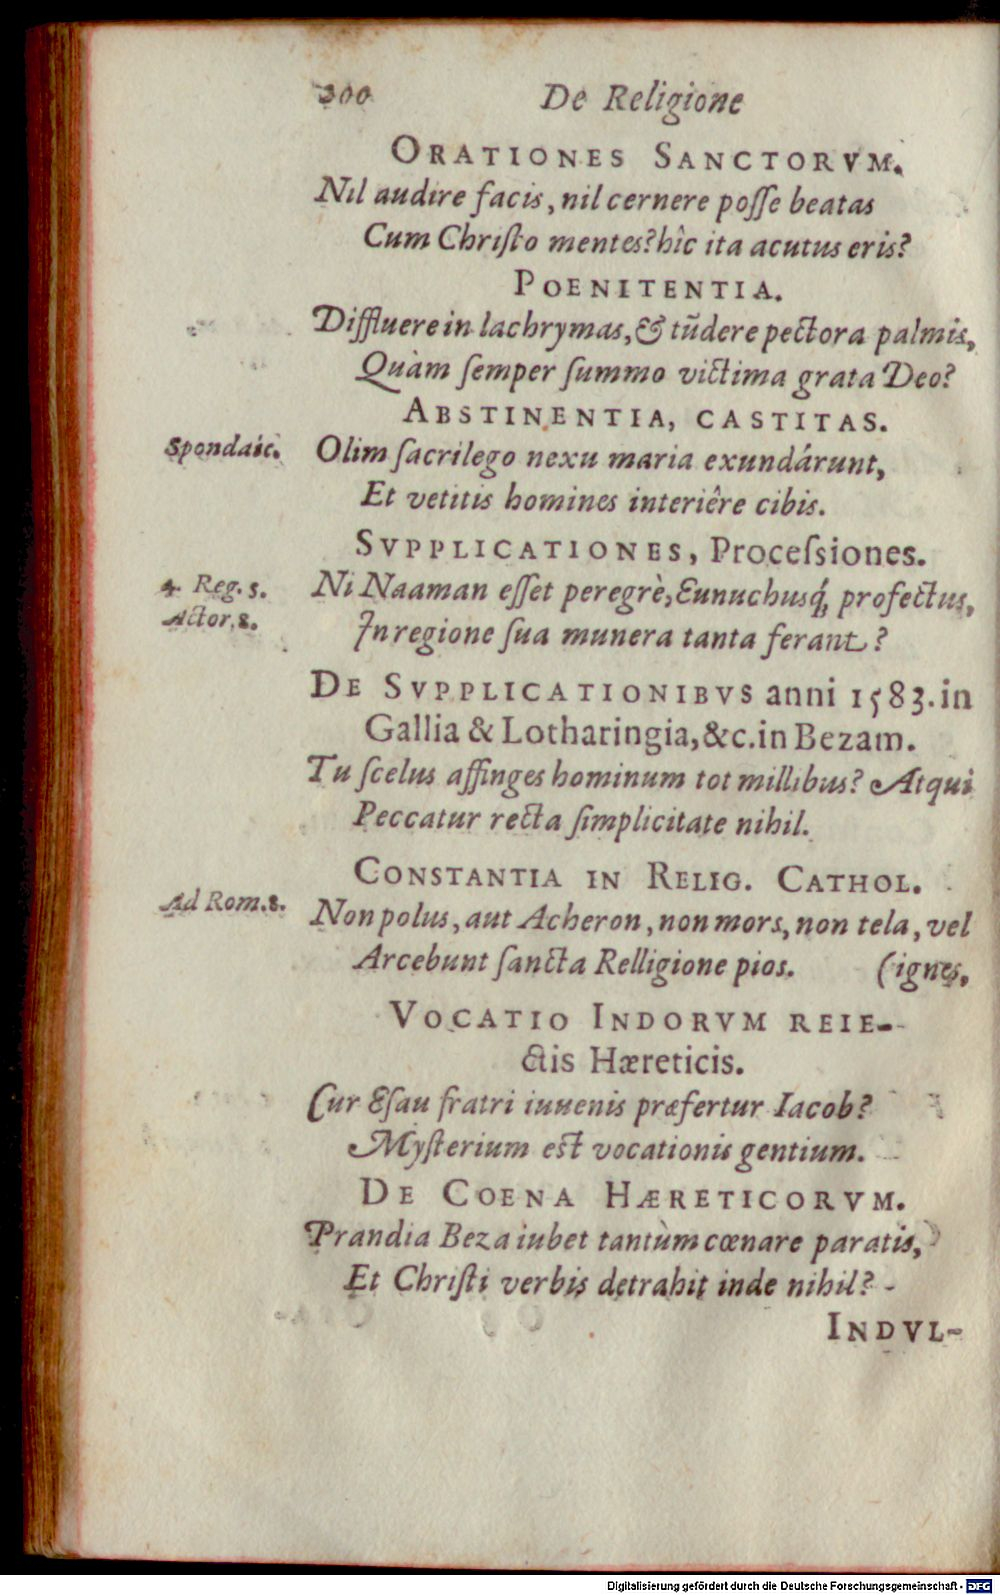 200 De Religione
ORATIONES SANCTORVM.
Nil audire facis, nil cernere posſe beatas
Cum Chriſto mentes? hîc ita acutus eris?
POENITENTIA.
Diffluere in lachrymas, & tũdere pectora palmis,
Quàm ſemper ſummo victima grata Deo?
ABSTINENTIA, CASTITAS.
Spondaic. Olim ſacrilego nexu maria exundárunt,
Et vetitis homines interiêre cibis.
SVPPLICATIONES, Proceſsiones.
4. Reg. 5. Ni Naaman eſſet peregrè, Eunuchusq́; profectus,
Actor. 8. In regione ſua munera tanta ferant?
DE SVPPLICATIONIBVS anni 1583. in
Gallia & Lotharingia, &c. in Bezam.
Tu ſcelus affinges hominum tot millibus? Atqui
Peccatur recta ſimplicitate nihil.
CONSTANTIA IN RELIG. CATHOL.
Ad Rom. 8. Non polus, aut Acheron, non mors, non tela, vel
Arcebunt ſancta Relligione pios. (ignes,
VOCATIO INDORVM REIE-
ctis Hæreticis.
Cur Eſau fratri iuuenis præfertur Iacob?
Myſterium est vocationis gentium.
DE COENA HÆRETICORVM.
Prandia Beza iubet tantùm cœnare paratis,
Et Chriſti verbis detrahit inde nihil?
INDVL-
Digitalisierung gefördert durch die Deutsche Forschungsgemeinschaft - DFG